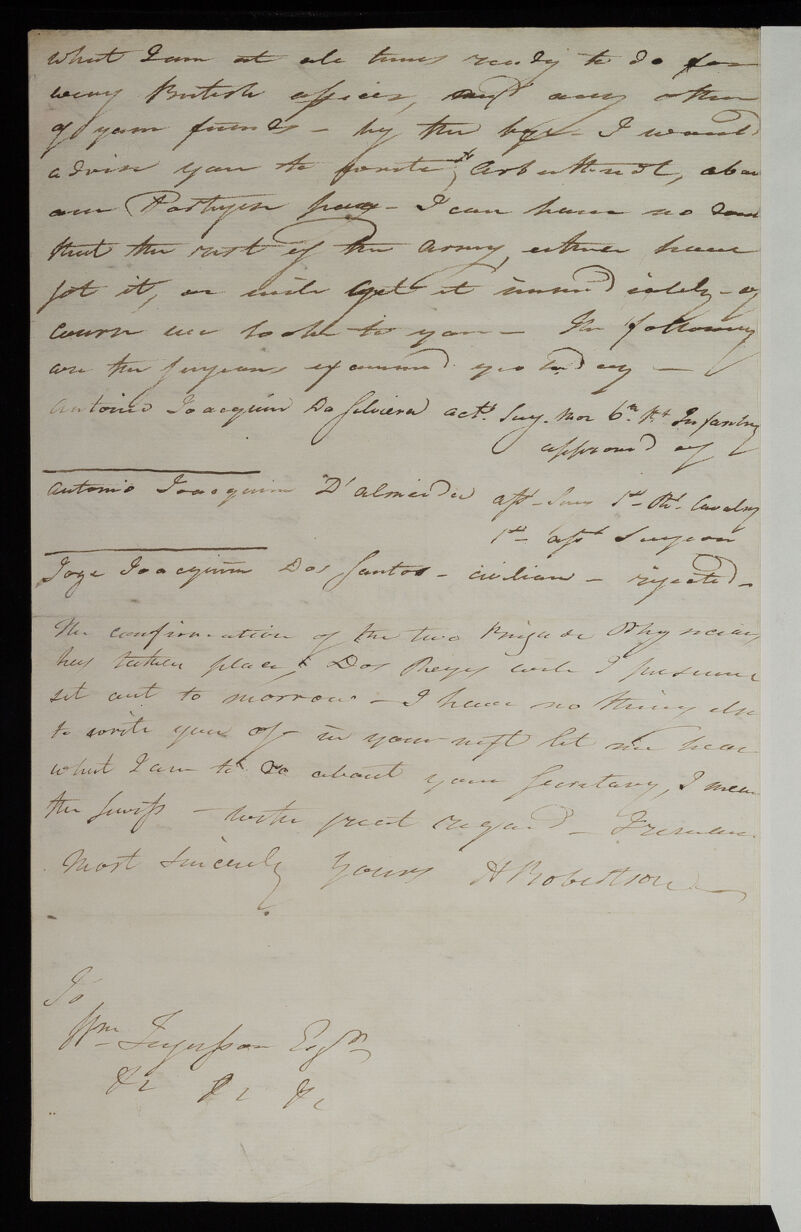 what I am at all times ready to do for
every British officer, and any other
of your funds - by the bye - I would
advise you to write Mr Arbuthnot, about
our Portugese pay - I can have no doubt
that the rest of the Army, either have
got it, or will get it immediately - of
course we look to you - The following
are the Surgeons examined yesterday -
Antonio Joacquim Da Silviera actg. Surg. Mor 6th. Rt Infantry
approved of
Antonio Joacquim D'almeida asst. Surg 1st Rt. Cavalry
1st asst Surgeon
Joze Joacquim Dos Santos - civilian - rejected -
The confirmation of the two Brigade Physicians
has taken place, & Dos Reys will I presume
set out to morrow - I have nothing else
to write you of - in your next let me hear
what I am to do about your Secretary, I mean
the Swiss - with great regard - I remain
Most Sincerely Yours A Robertson
To
Wm Fergusson Esqr
&c &c &c